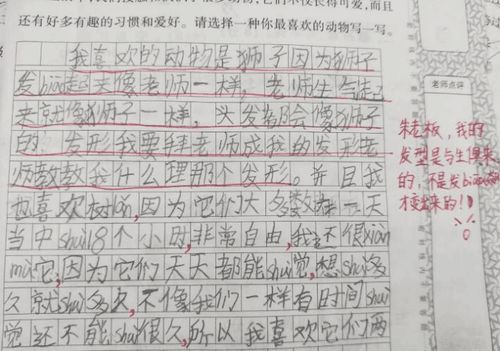 还有好多有趣的习惯和爱好。请选择一种你最喜欢的动物写一写。
我喜欢的动物是狮子因为狮子
发biao起来像老师一样,老师生气起
来就像狮子一样,头发都会像狮子
的 发形我要拜老师成我的发形老
师教教我什么理那个发形。并且我
也喜欢树lǎn,因为它们大多数在一天
当中shuì18个小时,非常自由,我还很xiàn
mù它,因为它们天天都能shuì觉,想shuì多
久就shuì多久,不像我们一样有时间shuì
觉还不能shuì很久,所以我喜欢它们两
老师点评
朱老板,我的
发型是与生俱来
的,不是发biao
才变出来的!